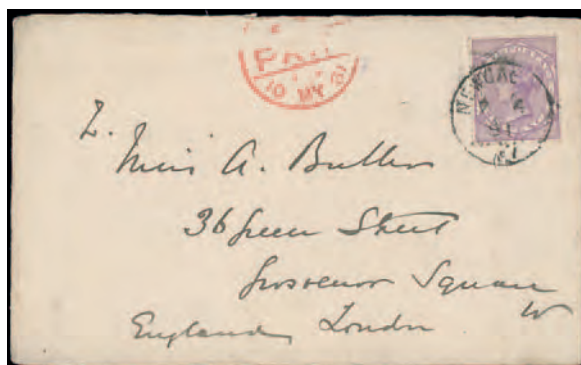 PAID
10 MY 81
Z.
Miss A. Butler
36 Green Street
Grosvenor Square
W
England London